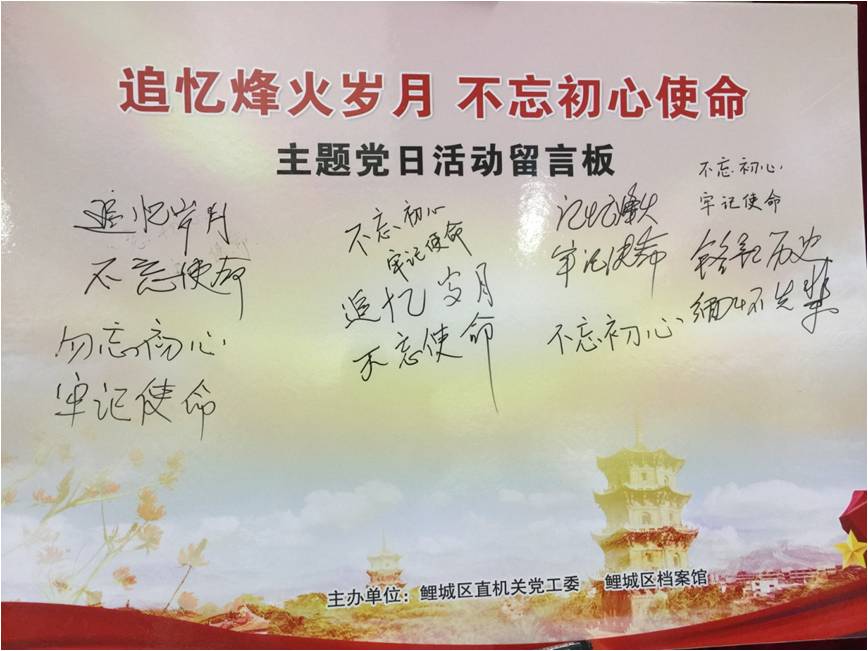 追忆烽火岁月 不忘初心使命
主题党日活动留言板
追忆岁月
不忘使命
勿忘初心
牢记使命
不忘初心
牢记使命
追忆岁月
不忘使命
记忆烽火
牢记使命
不忘初心
不忘初心
牢记使命
铭记历史
缅怀先辈
主办单位：鲤城区直机关党工委 鲤城区档案馆